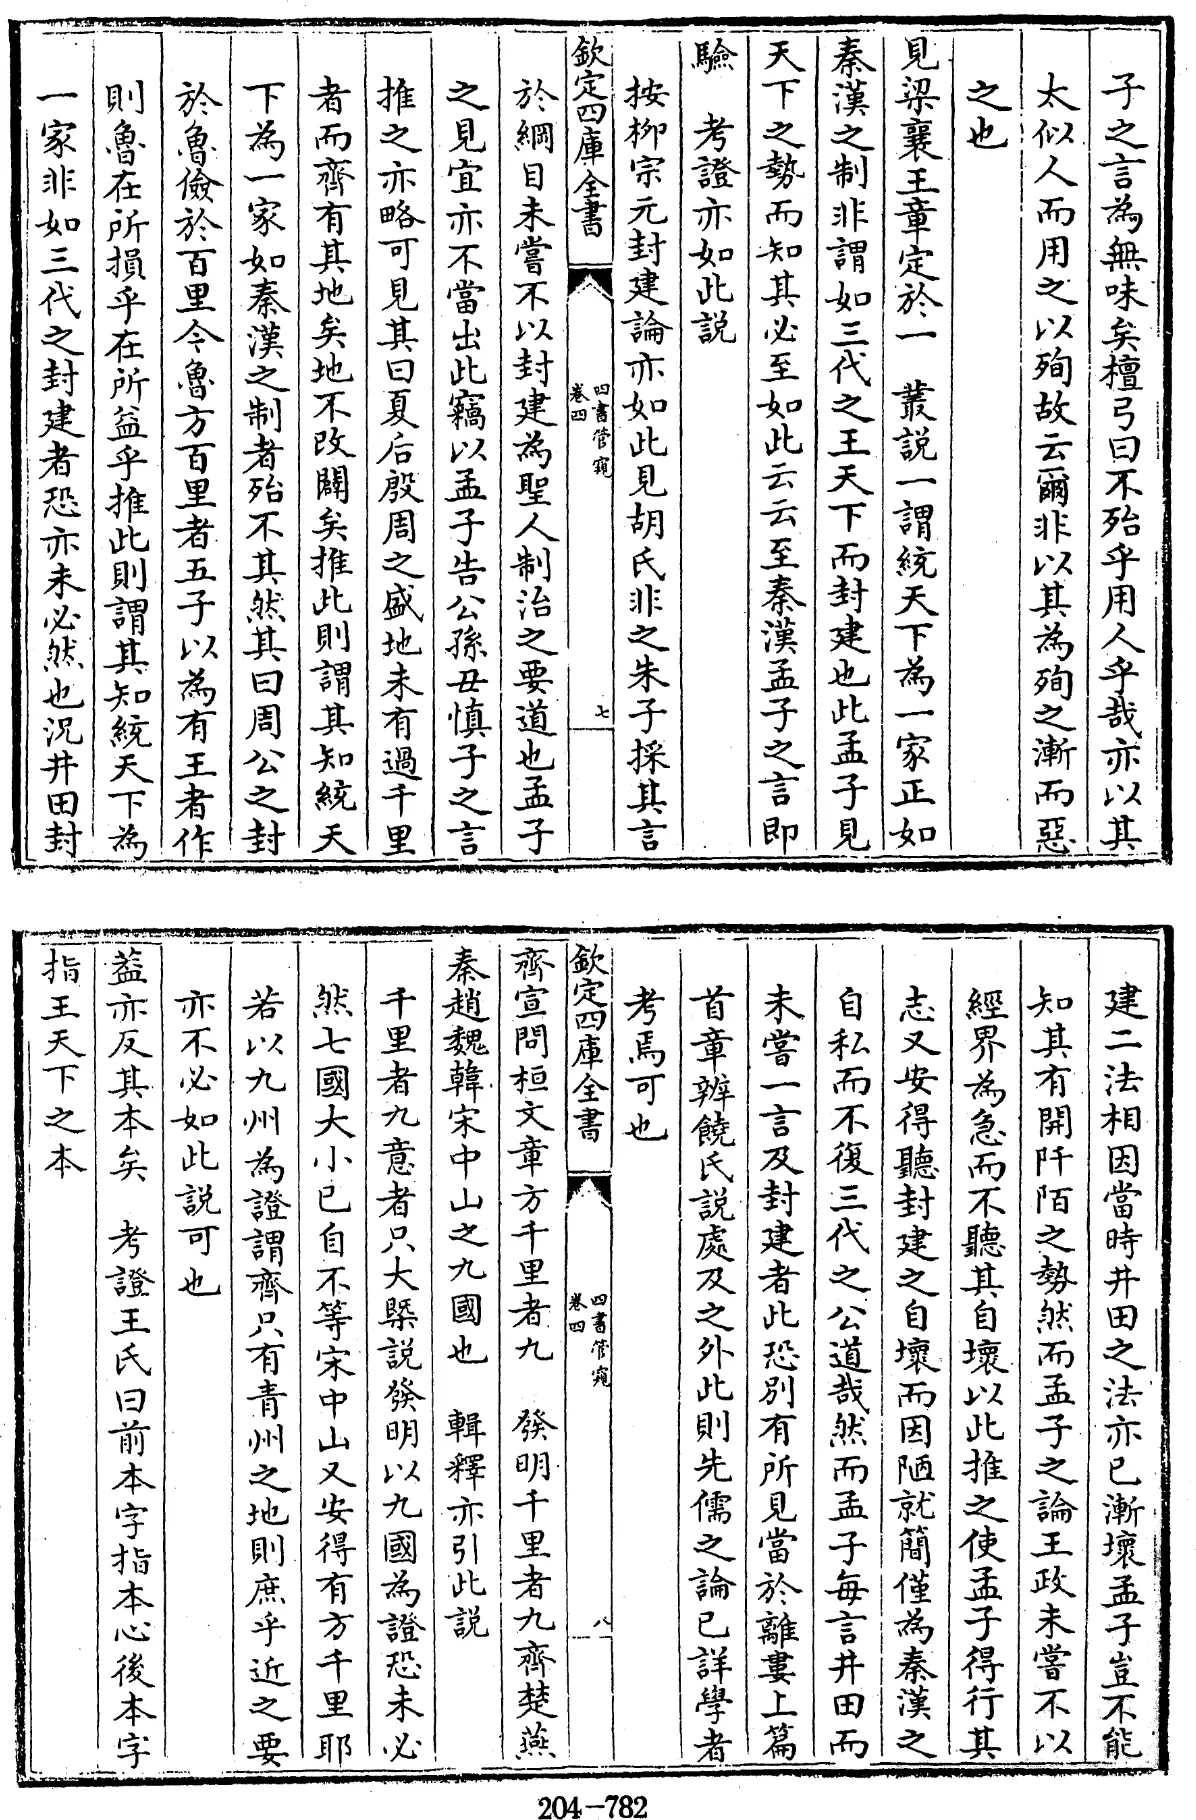 子之言為無味矣檀弓曰不殆乎用人乎哉亦以其
太似人而用之以殉故云爾非以其為殉之漸而惡
之也
見梁襄王章定於一　叢説一謂統天下為一家正如
秦漢之制非謂如三代之王天下而封建也此孟子見
天下之勢而知其必至如此云云至秦漢孟子之言即
驗　考證亦如此説
按柳宗元封建論亦如此見胡氏非之朱子採其言
欽定四庫全書
四書管窺
卷四
七
於綱目未嘗不以封建為聖人制治之要道也孟子
之見宜亦不當出此竊以孟子告公孫丑慎子之言
推之亦略可見其曰夏后殷周之盛地未有過千里
者而齊有其地矣地不改闢矣推此則謂其知統天
下為一家如秦漢之制者殆不其然其曰周公之封
於魯儉於百里今魯方百里者五子以為有王者作
則魯在所損乎在所益乎推此則謂其知統天下為
一家非如三代之封建者恐亦未必然也況井田封
建二法相因當時井田之法亦已漸壞孟子豈不能
知其有開阡陌之勢然而孟子之論王政未嘗不以
經界為急而不聽其自壞以此推之使孟子得行其
志又安得聽封建之自壞而因陋就簡僅為秦漢之
自私而不復三代之公道哉然而孟子每言井田而
未嘗一言及封建者此恐別有所見當於離婁上篇
首章辨饒氏説處及之外此則先儒之論已詳學者
考焉可也
欽定四庫全書
四書管窺
卷四
八
齊宣問桓文章方千里者九　發明千里者九齊楚燕
秦趙魏韓宋中山之九國也　輯釋亦引此説
千里者九意者只大槩説發明以九國為證恐未必
然七國大小已自不等宋中山又安得有方千里耶
若以九州為證謂齊只有青州之地則庶乎近之要
亦不必如此説可也
蓋亦反其本矣　考證王氏曰前本字指本心後本字
指王天下之本
204—782